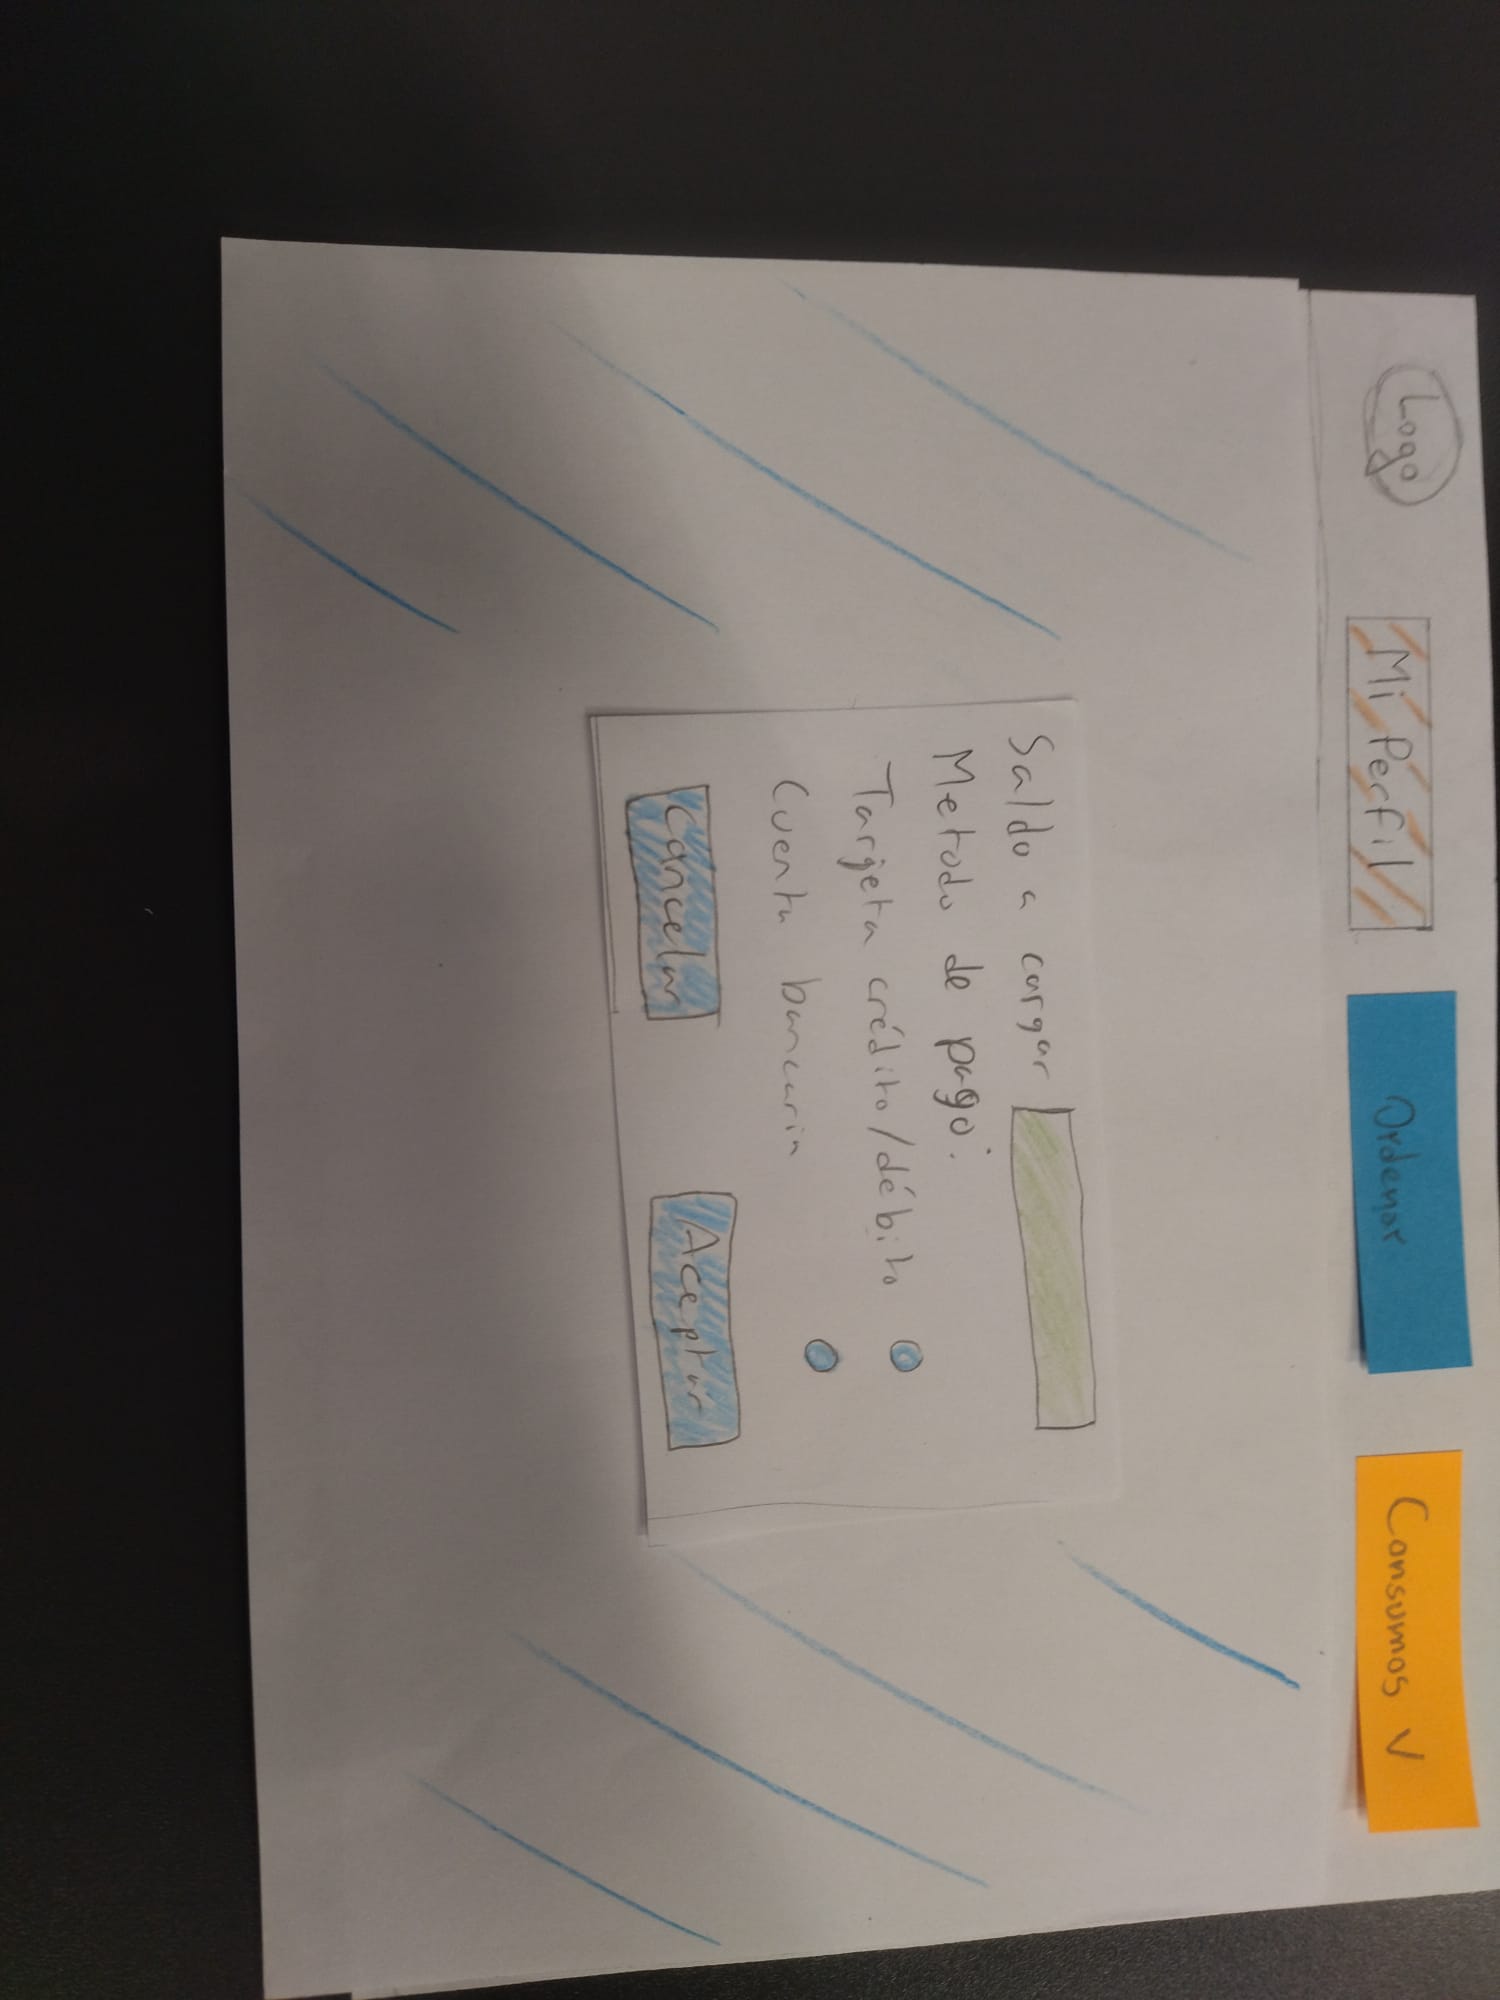 Logo
Mi Perfil
Ordenar
Consumos V
Saldo a cargar
Metodo de pago:
Tarjeta crédito/débito
Cuenta bancaria
Cancelar
Aceptar